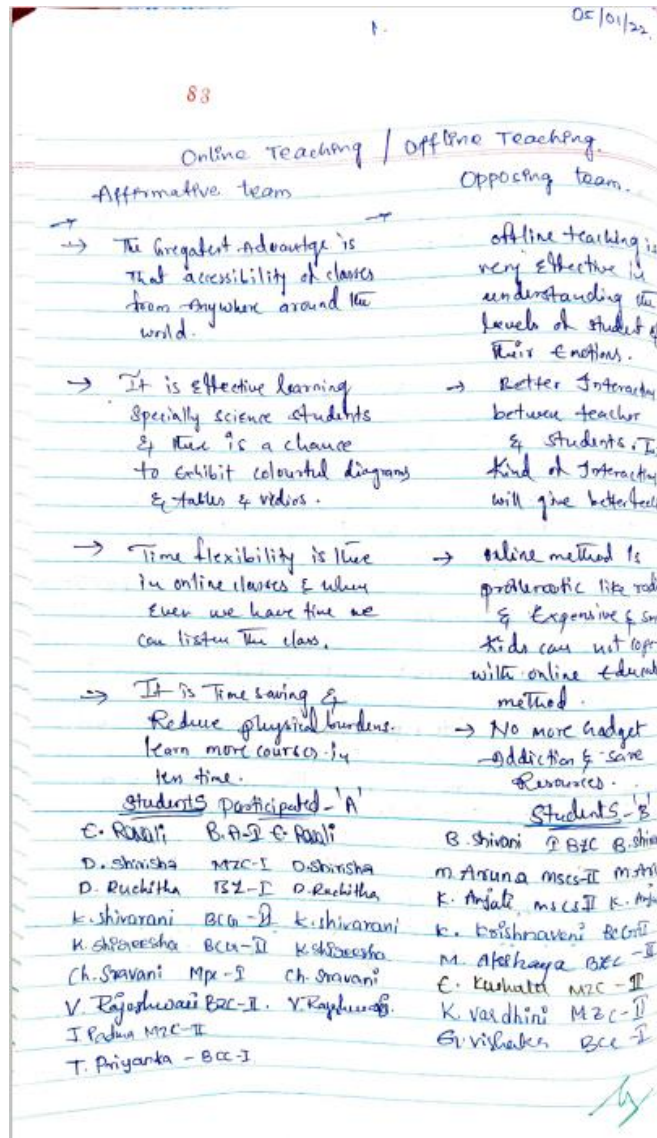 05/01/22.
1.
83
Online Teaching / Offline Teaching.
Affirmative team
→ The Gregatest Advantge is
That accessibility of classes
from Anywhere around the
world.
→ It is Effective learning
Specially science students
& there is a chance
to Exhibit colourful diagrams
& tables & vidios.
→ Time flexibility is there
in online classes & when
Even we have time we
can listen the class.
→ It is Time saving &
Reduce physical burdens.
learn more courses in
less time.
Students Participated - 'A'
E. Ravali B.A-I E. Ravali
D. Shirisha MZC-I D. Shirisha
D. Ruchitha BZ-I D. Ruchitha
K. shivarani BCG-II K. shivarani
K. shireesha BCG-II K. shireesha
Ch. Sravani Mpc-I Ch. Sravani
V. Rajeshwari BZC-II.
J. Padma MZC-II
T. Priyanka - BCC-I
Opposing team.
→ offline teaching is
very Effective in
understanding the
levels of student of
their Emotions.
→ Better Interaction
between teacher
& students.
Kind of Interaction
will give better
→ online method is
like
& Expensive &
Kids can not
with online
method.
→ No more Gadget
Addiction & save
Resources.
Students - 'B'
B. Shivani I BZC B. Shiva
M. Aruna MSCS-II M. Aru
K. Anjali MSCS II K. Anja
K. Krishnaveni BCG II
M. Akshaya BZC-II
E. Kushala MZC-II
K. vardhini MZC-II
G. vishaka BCC-I